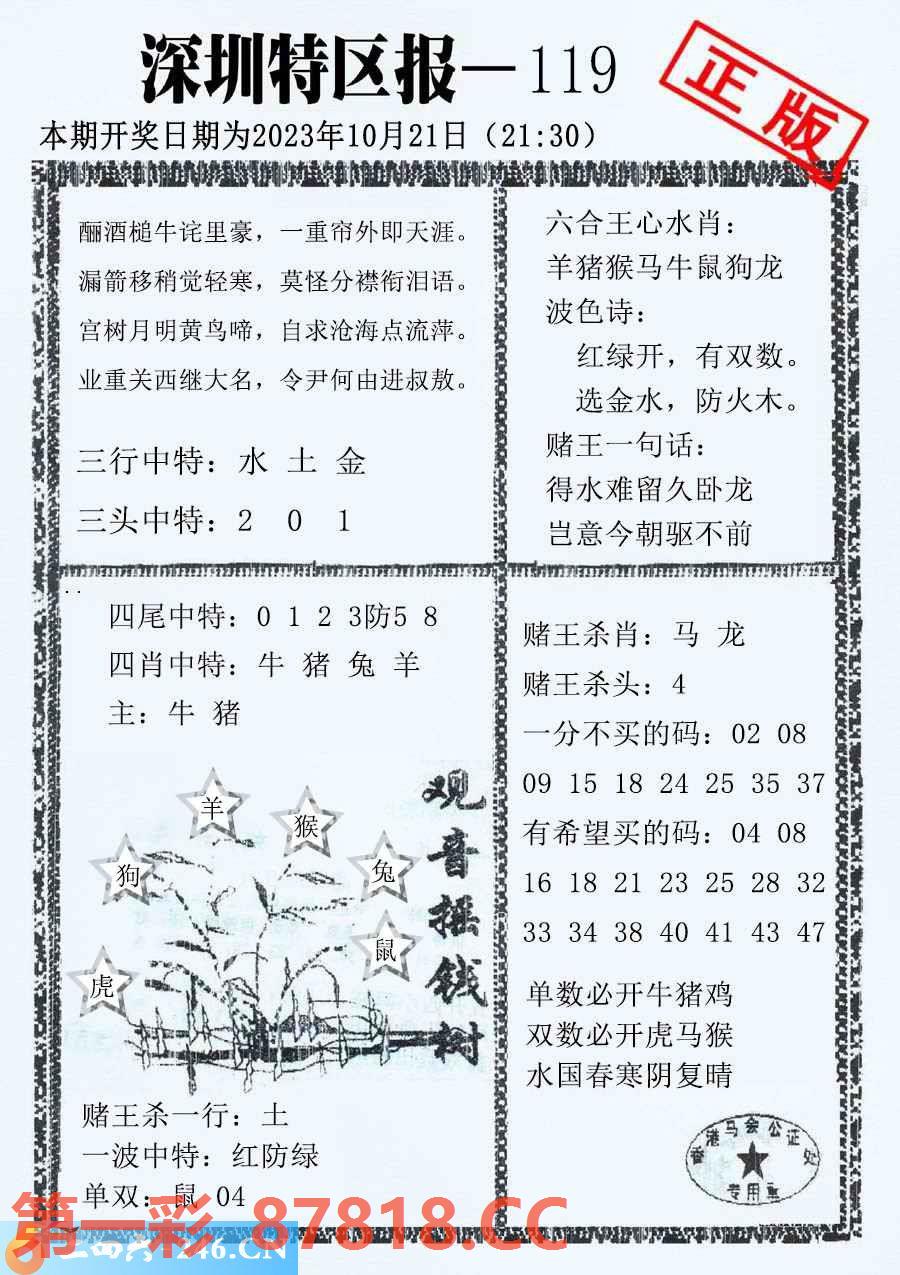 深圳特区报—119
正版
本期开奖日期为2023年10月21日（21:30）
酾酒槌牛诧里豪，一重帘外即天涯。
漏箭移稍觉轻寒，莫怪分襟衔泪语。
宫树月明黄鸟啼，自求沧海点流萍。
业重关西继大名，令尹何由进叔敖。
三行中特：水 土 金
三头中特：2 0 1
六合王心水肖：
羊猪猴马牛鼠狗龙
波色诗：
红绿开，有双数。
选金水，防火木。
赌王一句话：
得水难留久卧龙
岂意今朝驱不前
四尾中特：0 1 2 3防5 8
四肖中特：牛 猪 兔 羊
主：牛 猪
羊
猴
狗
兔
鼠
虎
观音摇钱树
赌王杀一行：土
一波中特：红防绿
单双：鼠 04
赌王杀肖：马 龙
赌王杀头：4
一分不买的码：02 08
09 15 18 24 25 35 37
有希望买的码：04 08
16 18 21 23 25 28 32
33 34 38 40 41 43 47
单数必开牛猪鸡
双数必开虎马猴
水国春寒阴复晴
香港马会公证处
专用章
第一彩 87818.CC
246.CN